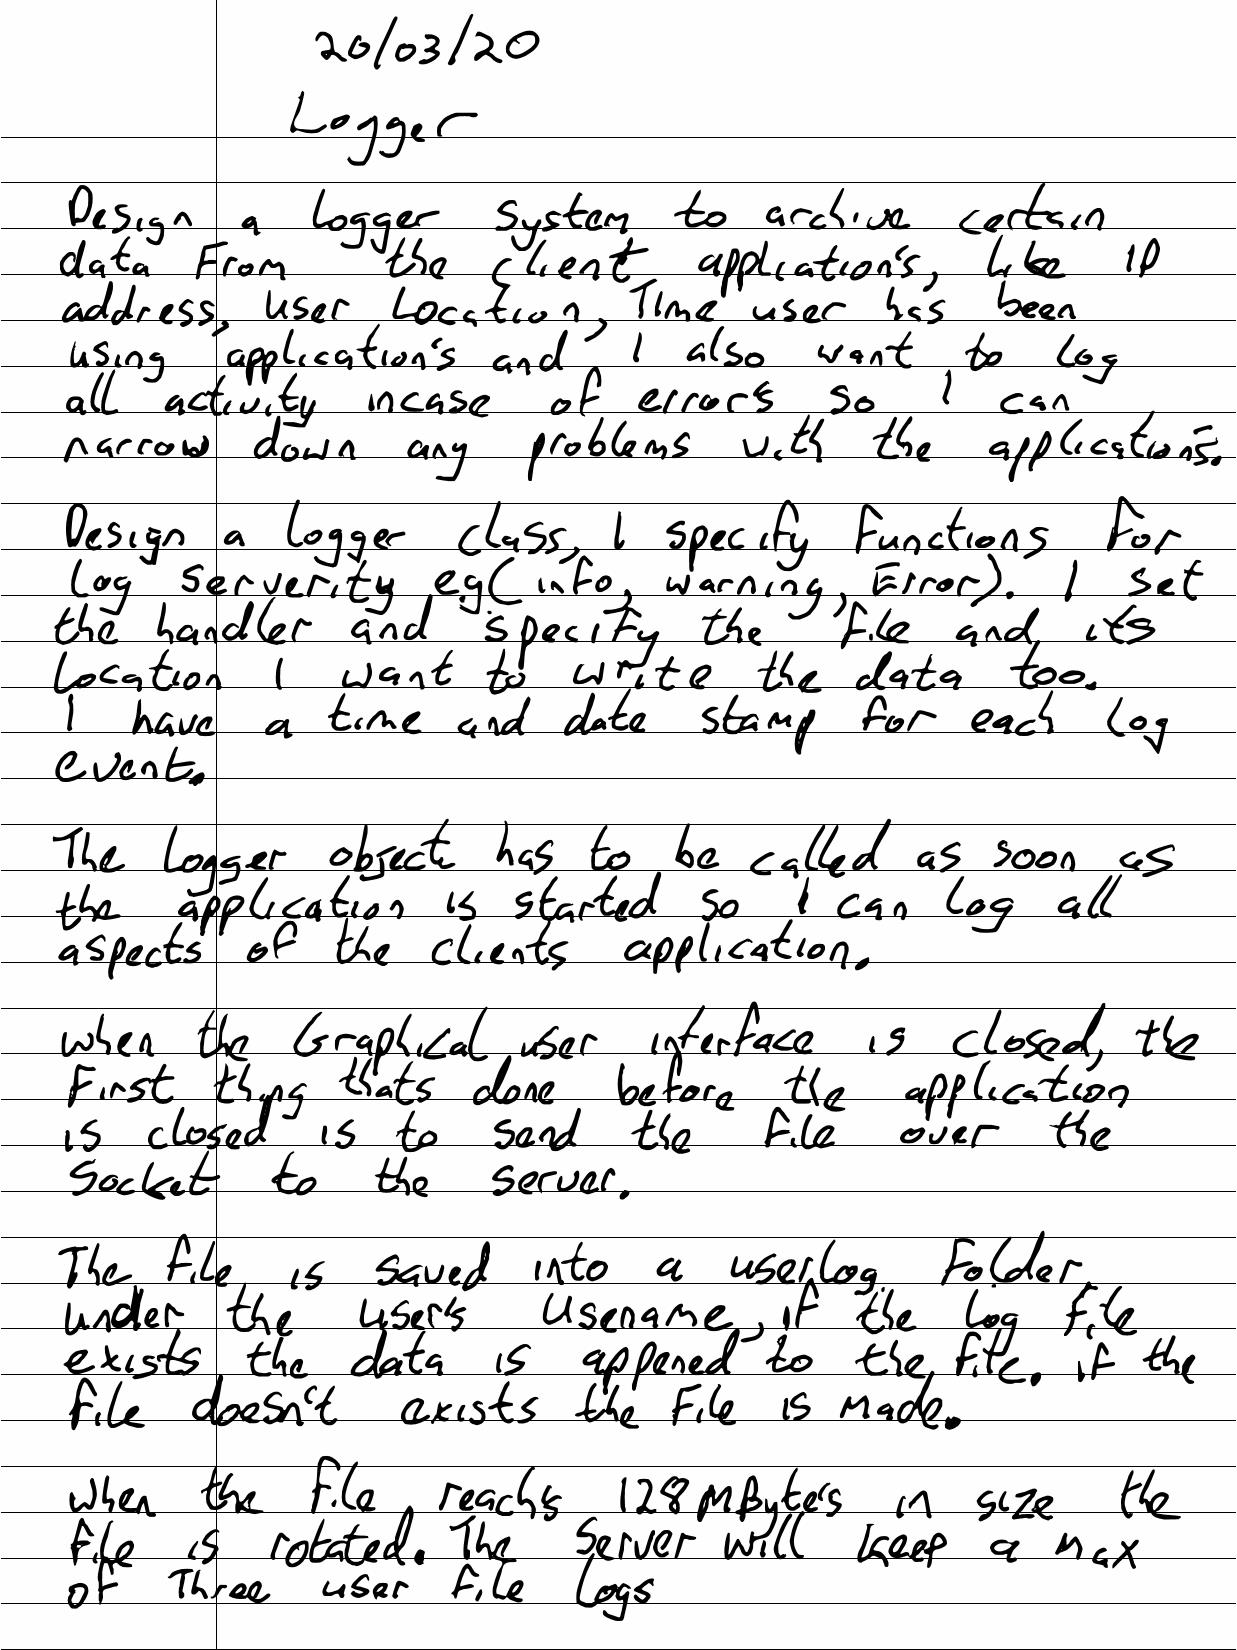 20/03/20
Logger
Design a logger system to archive certain
data From the client application's, like IP
address, user Location, Time user has been
using application's and I also want to log
all activity incase of errors so I can
narrow down any problems with the applications.
Design a logger class, I specify Functions For
log serverity eg(info, warning, Error). I set
the handler and specify the file and its
location I want to write the data too.
I have a time and date stamp for each log
event.
The logger object has to be called as soon as
the application is started so I can log all
aspects of the clients application.
when the Graphical user interface is closed, the
First thing thats done before the application
is closed is to send the file over the
Socket to the server.
The file is saved into a userlog Folder
under the user's Usename, if the log file
exists the data is appened to the file. if the
file doesn't exists the File is made.
when the file reachs 128 MByte's in size the
file is rotated. The Server will keep a max
of Three user file logs